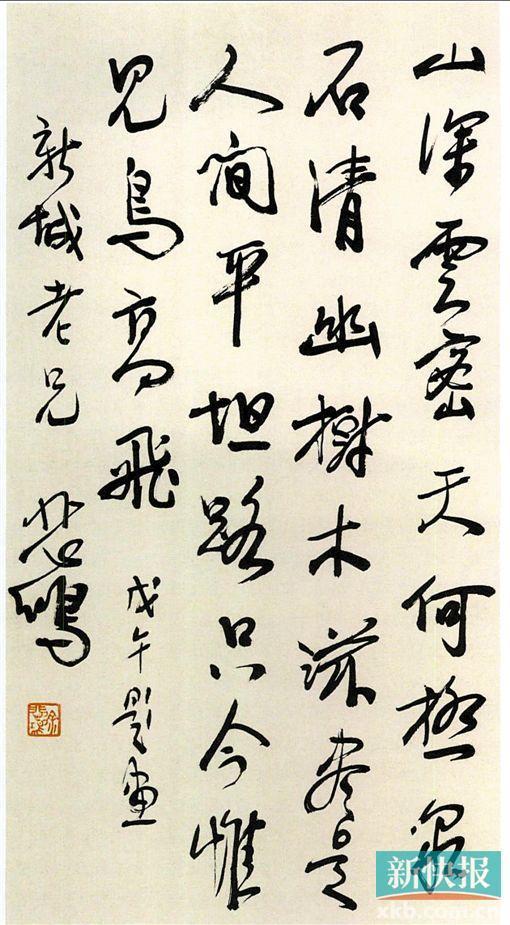 山深雲密天何極泉
石清幽樹木滋盡是
人間平坦路只今惟
見鳥高飛
戊午題畫
新城老兄
悲鴻
新快报
xkb.com.cn